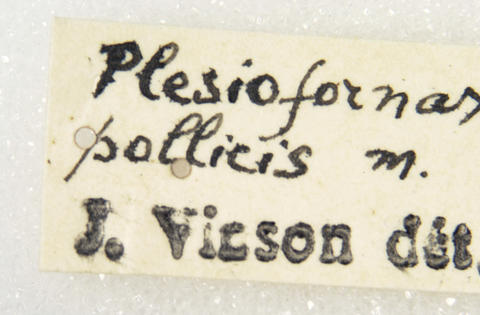 Plesiofornax
pollicis m.
J. Vicson dét.